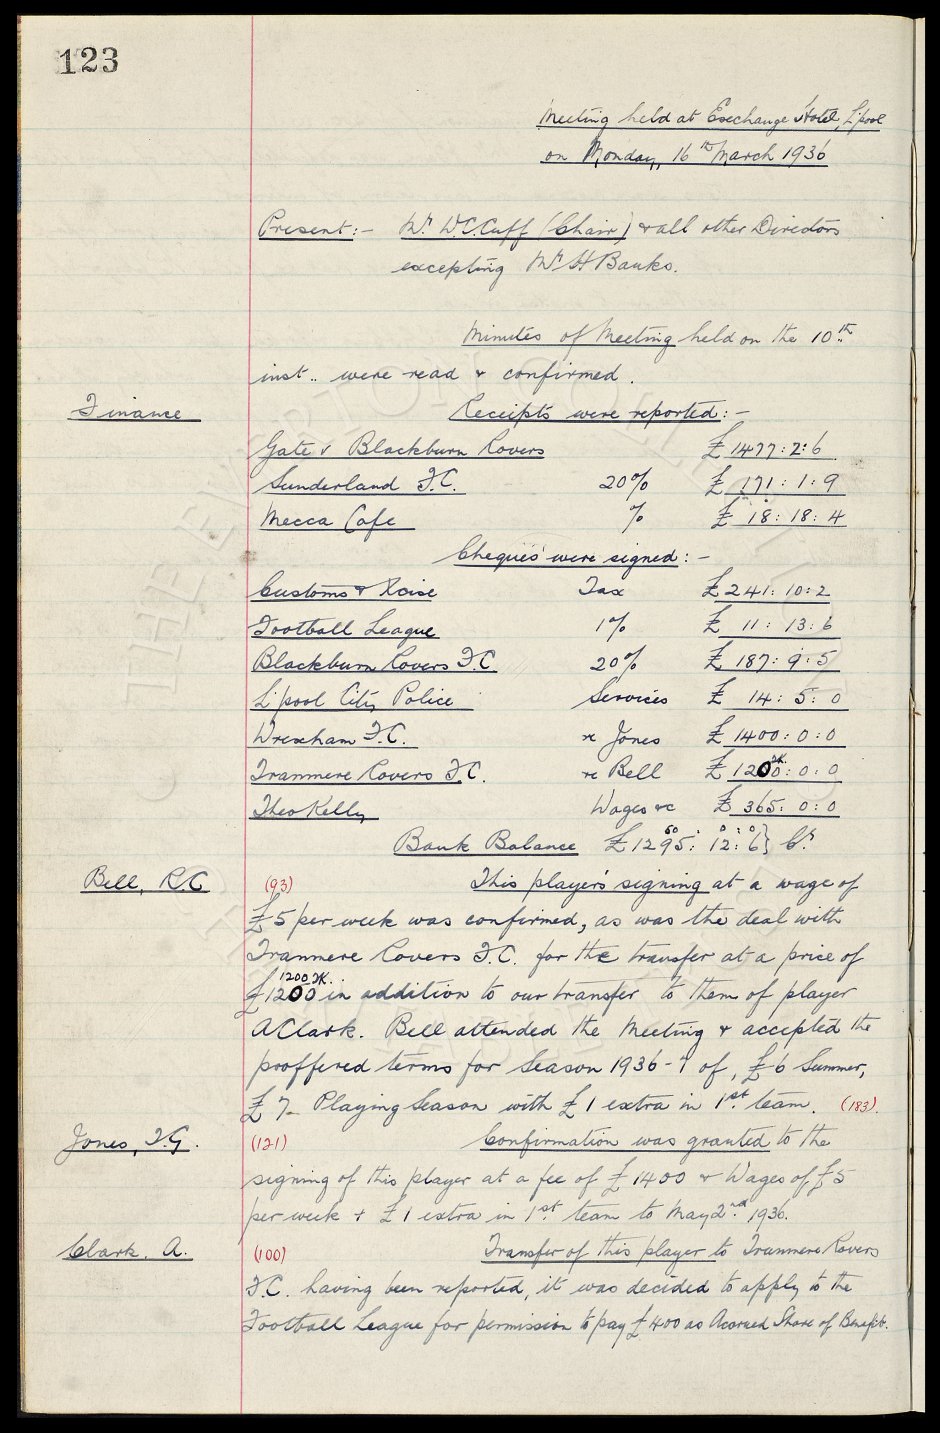 123
Meeting held at Exchange Hotel, L'pool
on Monday, 16th March 1936
Present:- Mr. W.C. Cuff (Chair) & all other Directors
excepting Mr H Banks.
Minutes of Meeting held on the 10th
inst.. were read & confirmed.
Finance Receipts were reported:-
Gate v Blackburn Rovers £1477:2:6
Sunderland F.C. 20% £171:1:9
Mecca Cafe % £18:18:4
Cheques were signed:-
Customs & Xcise Tax £241:10:2
Football League 1% £11:13:6
Blackburn Rovers F.C. 20% £187:9:5
L'pool City Police Services £14:5:0
Wrexham F.C. re Jones £1400:0:0
Tranmere Rovers F.C. re Bell £1200:0:0
Theo Kelly Wages &c £365:0:0
Bank Balance £1295:12:6 Cr
Bell, R.C (93) This player's signing at a wage of
£5 per week was confirmed, as was the deal with
Tranmere Rovers F.C. for the transfer at a price of
1200 TK.
£1200 in addition to our transfer to them of player
A Clark. Bell attended the Meeting & accepted the
proffered terms for Season 1936-7 of, £6 Summer,
£7- Playing Season with £1 extra in 1st. team. (183).
Jones, T.G. (121) Confirmation was granted to the
signing of this player at a fee of £1400 & Wages of £5
per week + £1 extra in 1st team to May 2nd 1936.
Clark. A. (100) Transfer of this player to Tranmere Rovers
F.C. having been reported, it was decided to apply to the
Football League for permission to pay £400 as Accrued Share of Benefit.